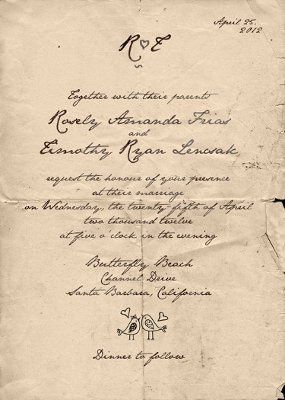 April 25,
2012
R♡T
Together with their parents
Rosely Amanda Frias
and
Timothy Ryan Lencsak
request the honour of your presence
at their marriage
on Wednesday, the twenty fifth of April
two thousand twelve
at five o'clock in the evening
Butterfly Beach
Channel Drive
Santa Barbara, California
Dinner to follow